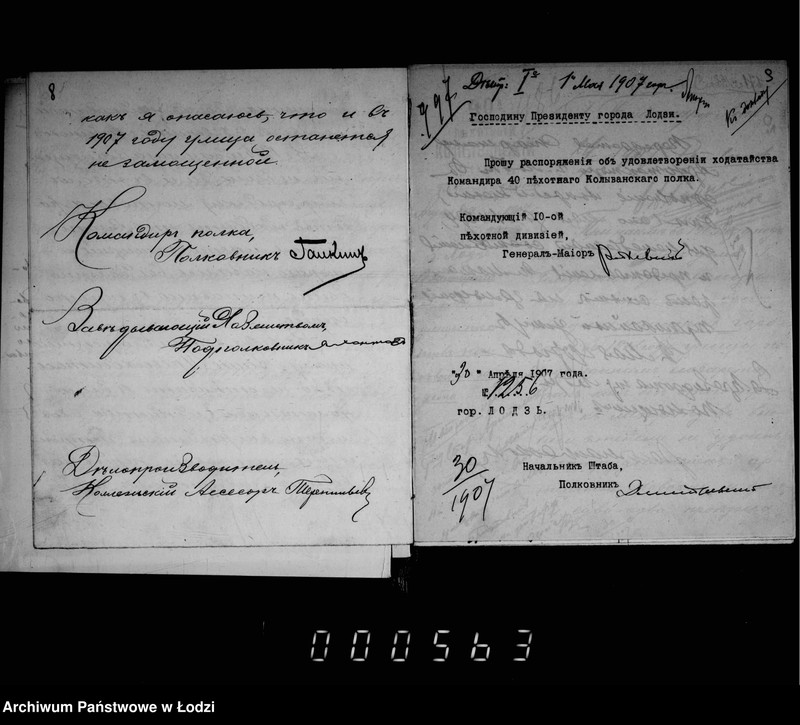 8
какъ я опасаюсь, что и въ
1907 году улица останется
не замощенной.
Командиръ полка,
Полковникъ
Завѣдывающій Хозяйствомъ,
Подполковникъ
Дѣлопроизводитель,
Коллежскій Ассесоръ Терентьевъ
3
I 1 Мая 1907
Господину Президенту города Лодзи.
Прошу распоряженія объ удовлетвореніи ходатайства
Командира 40 пѣхотнаго Колыванскаго полка.
Командующій 10-ой
пѣхотной дивизіей,
Генералъ-Маіоръ
"30" Апрѣля 1907 года.
№ 1256
гор. ЛОДЗЬ.
30
1907
Начальникъ Штаба,
Полковникъ
000563
Archiwum Państwowe w Łodzi